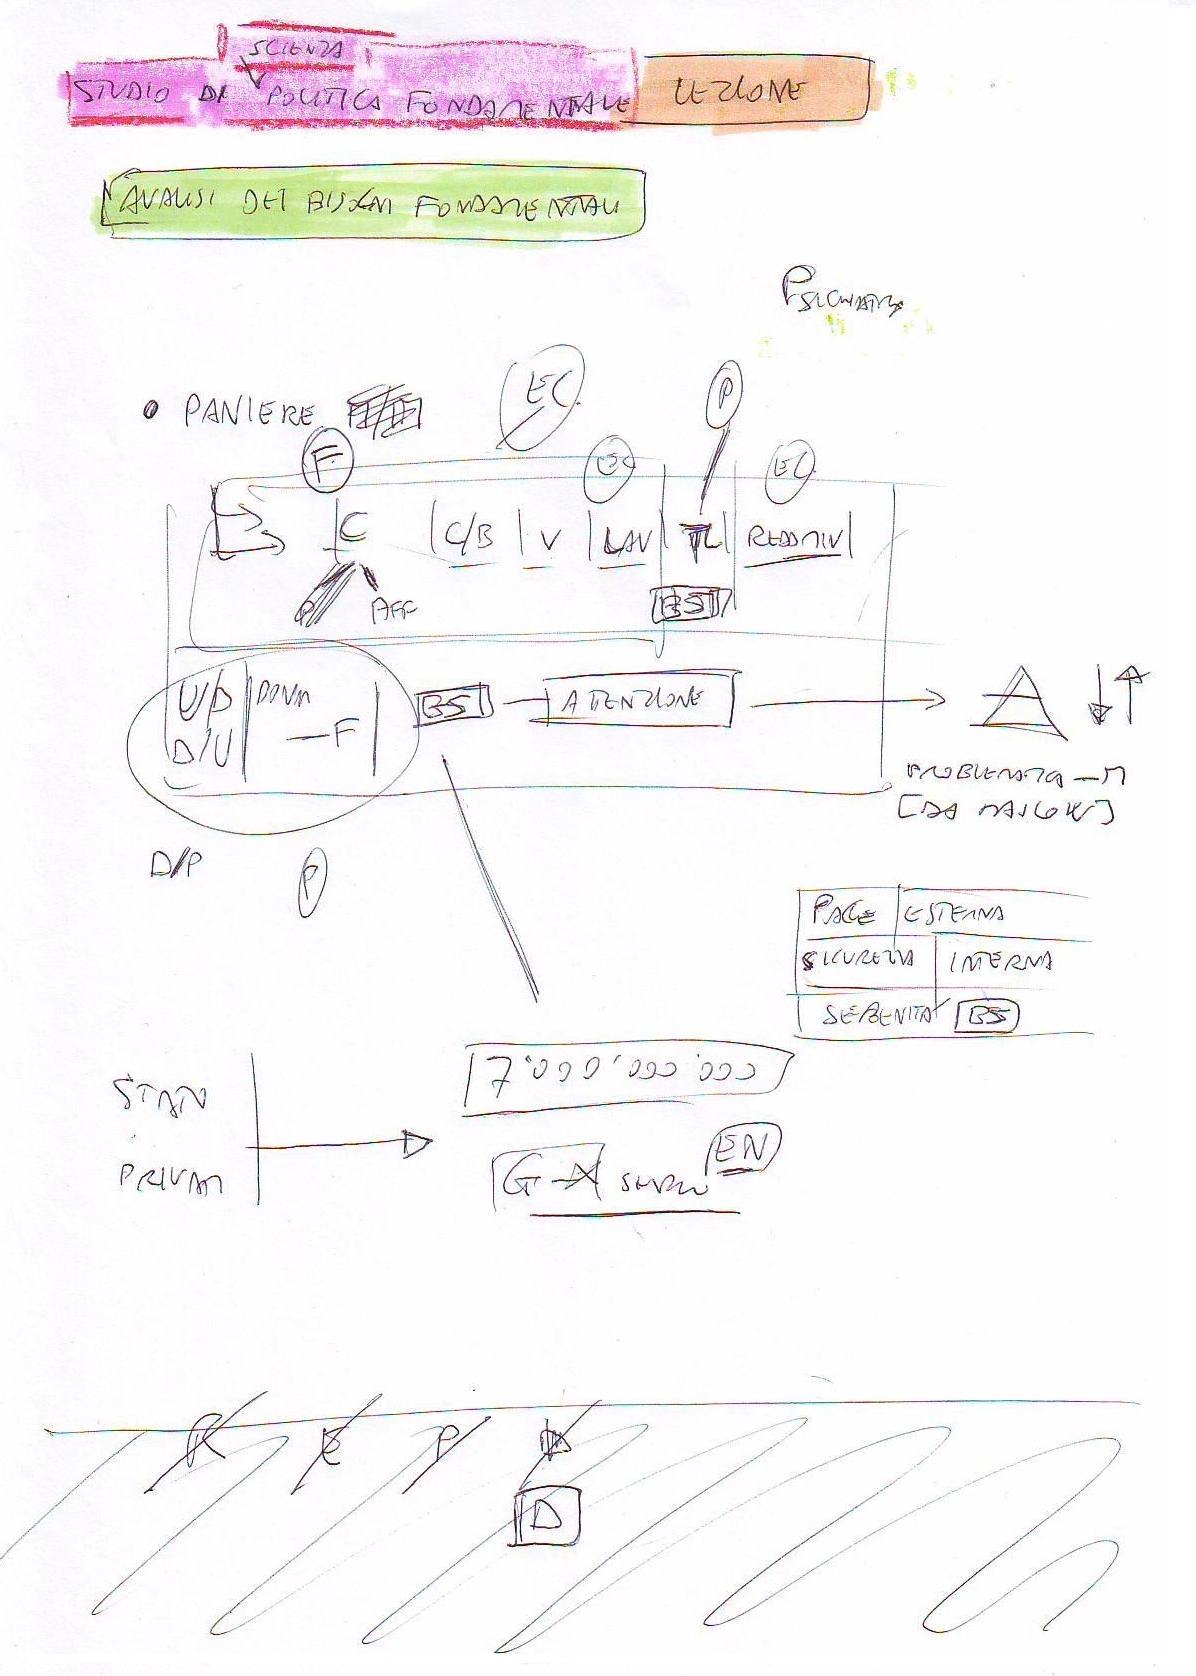 SCIENZA
STUDIO DI POLITICA FONDAMENTALE LEZIONE
ANALISI DEI BISOGNI FONDAMENTALI
PSICHIATRIA
• PANIERE
EC.
P
F
EC
EC.
C C/B V LAV TL REDDITIV
AFF
BST
U/D DONNA
D/U —F
BS ATTENZIONE
PROBLEMATICA —M
[DA MASLOW]
D/P
P
PACE ESTERNA
SICUREZZA INTERNA
SERENITA' BS
7'000'000'000
STATI
PRIVATI
EN
G-A
R E P
D